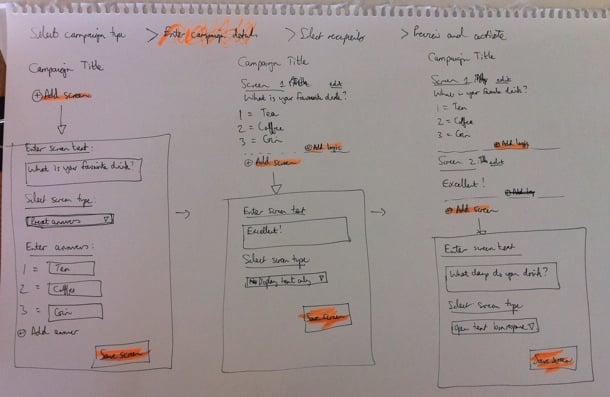 Select campaign type > Enter campaign details > Select recipients > Preview and activate
Campaign Title
⊕ Add screen
Enter screen text:
What is your favourite drink?
Select screen type:
Preset answers ▽
Enter answers:
1 = Tea
2 = Coffee
3 = Gin
⊕ Add answer
Save screen
Campaign Title
Screen 1 edit
What is your favourite drink?
1 = Tea
2 = Coffee
3 = Gin
⊕ Add logic
⊕ Add screen
Enter screen text
Excellent!
Select screen type
Display text only ▽
Save screen
Campaign Title
Screen 1 edit
What is your favourite drink?
1 = Tea
2 = Coffee
3 = Gin
⊕ Add logic
Screen 2 edit
Excellent!
⊕ Add screen
Enter screen text
What do you drink?
Select screen type
Open text ▽
Save screen